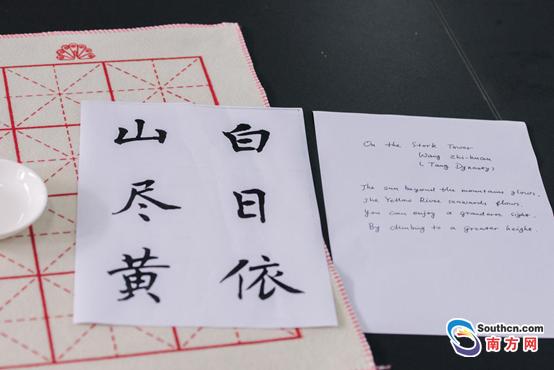 白日依
山尽黄
On the Stork Tower
Wang Zhi-huan
( Tang Dynasty )
The sun beyond the mountains glows,
The Yellow River seawards flows.
You can enjoy a sight.
By climbing to a greater height.
Southcn.com
南方网